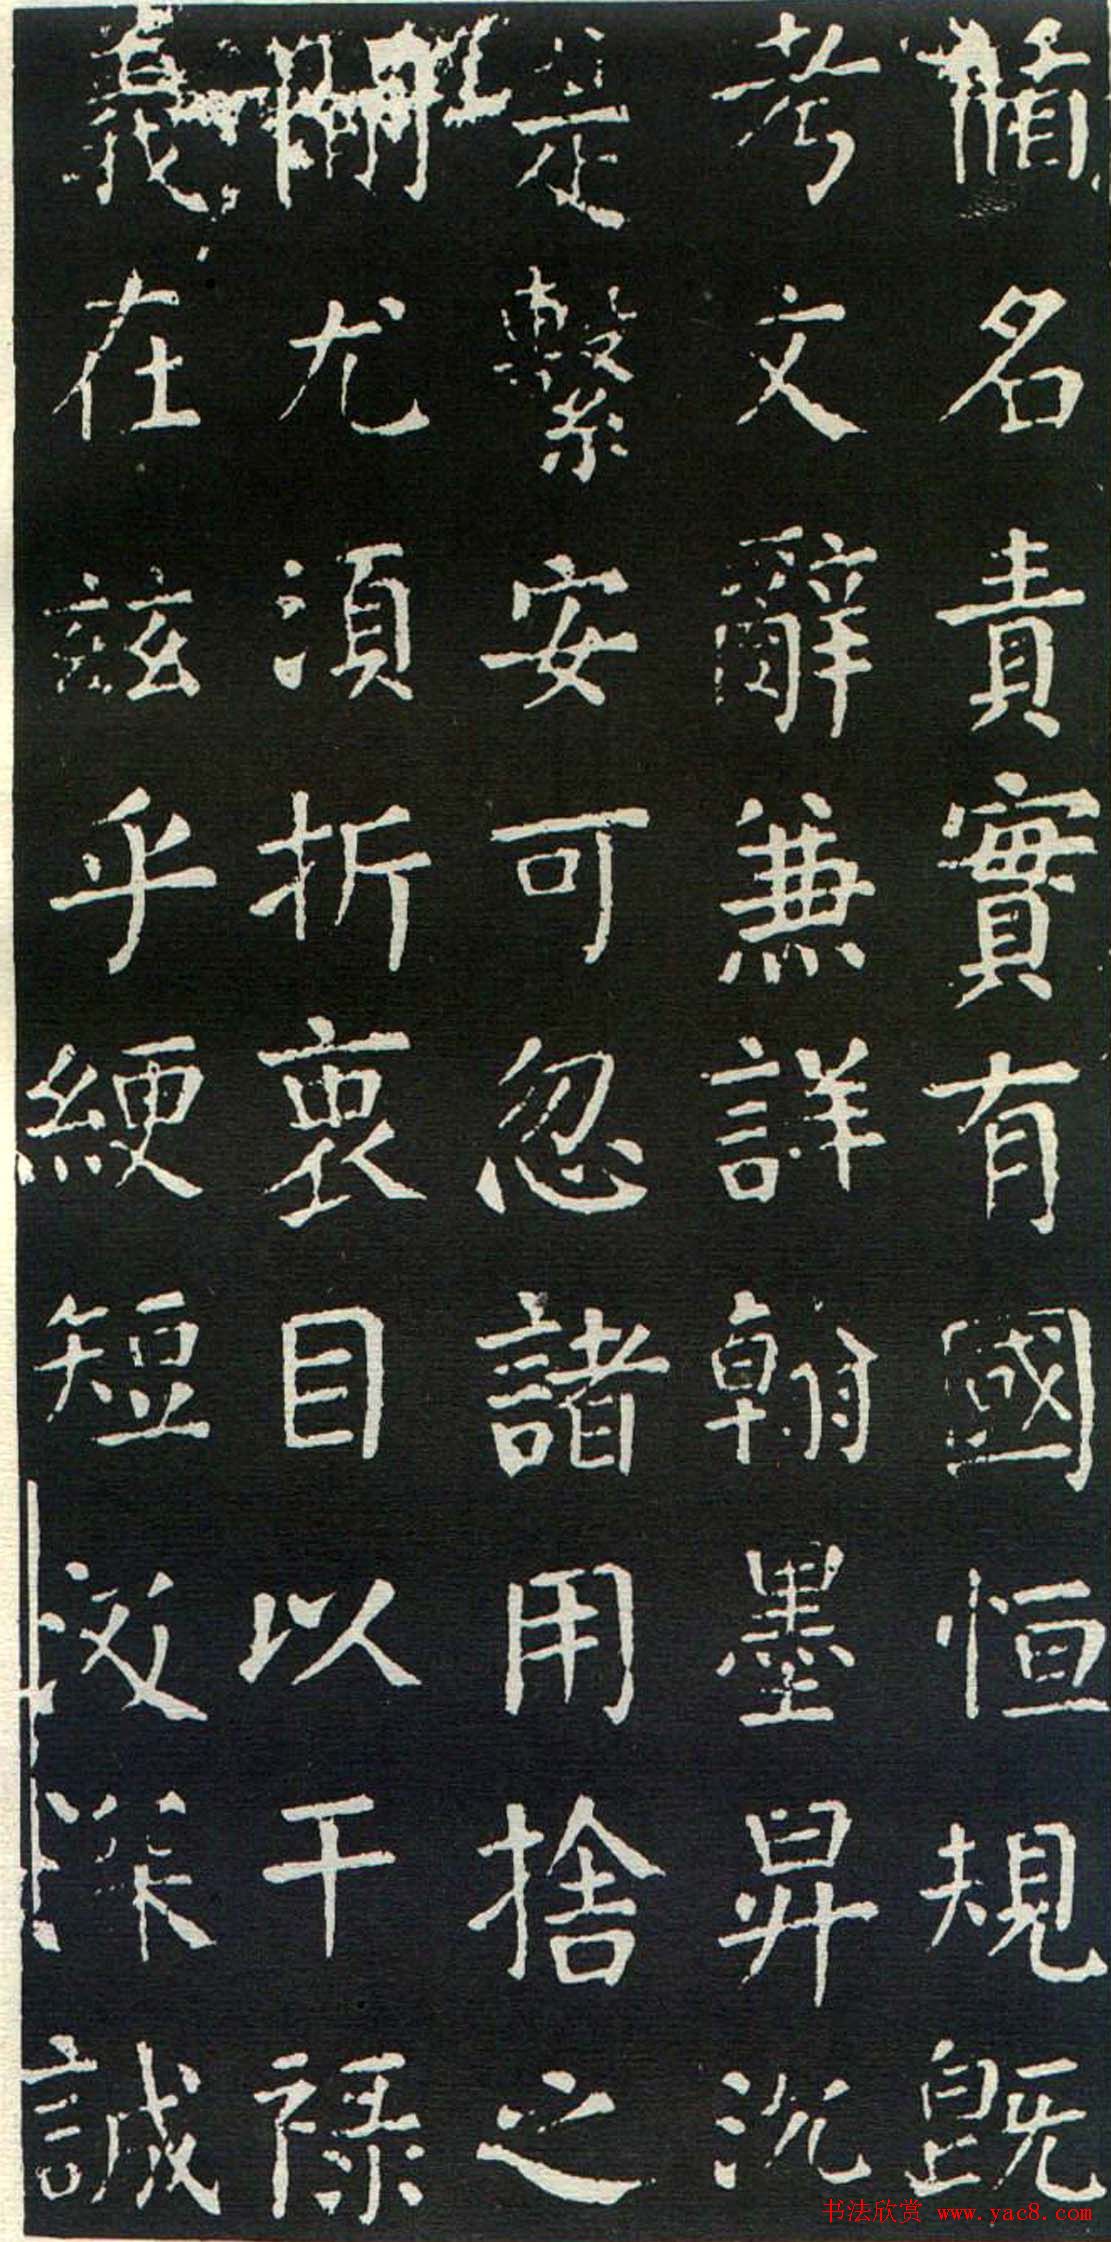 循名責實有國恒規既
考文辭兼詳翰墨昇沉
是繫安可忽諸用捨之
間尤湏折衷目以干禄
義在兹乎綆短汲深誠
书法欣赏 www.yac8.com